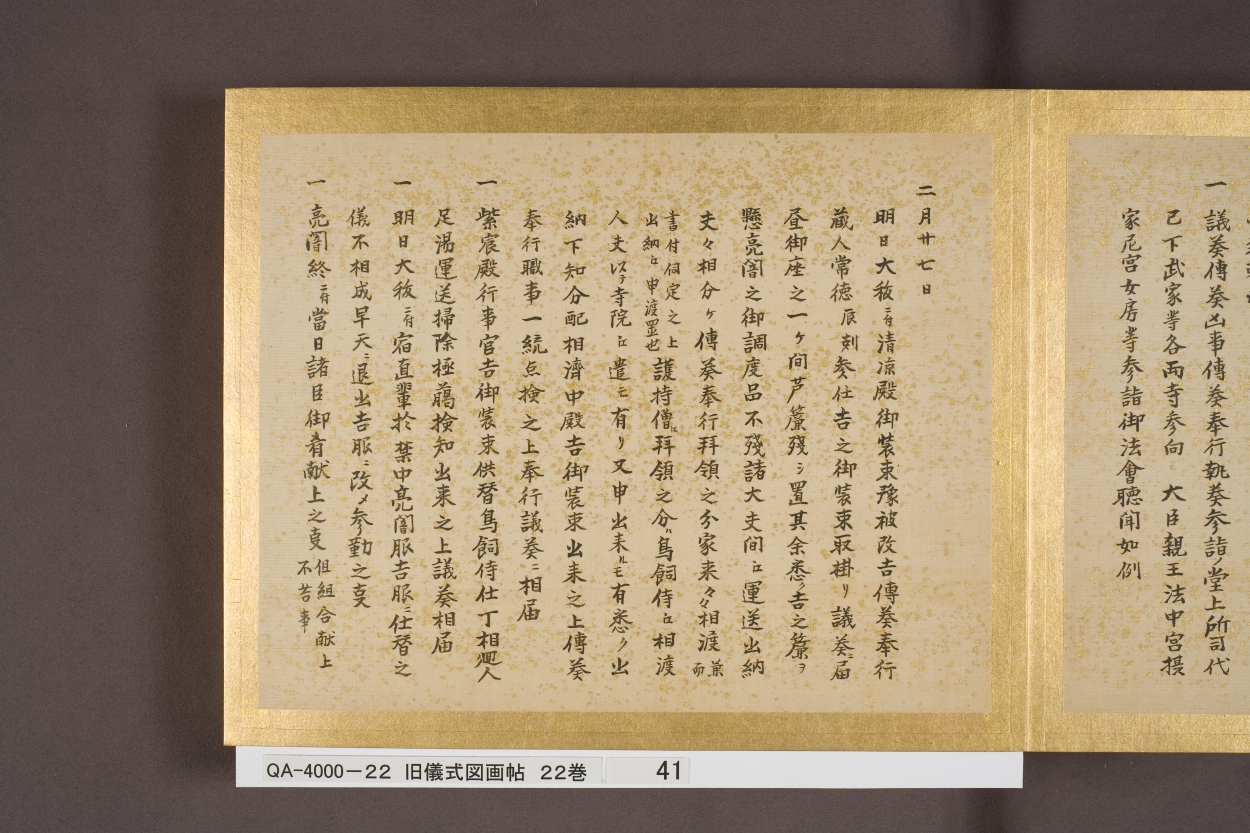 一 議奏傳奏凶事傳奏奉行執奏参詣ノ堂上所司代
已下武家等各両寺参向 大臣親王法中宮摂
家尼宮女房等参詣御法會聴聞如例
二月廿七日
明日大祓ニ付清凉殿御装束豫被改吉傳奏奉行
蔵人常徳辰刻参仕吉之御装束取掛リ議奏ニ届
昼御座之一ケ間芦簾残シ置其余悉ク吉之簾ヲ
懸亮闇之御調度品不残諸大夫間江運送出納
夫々相分ケ傳奏奉行拜領之分家来々々相渡 兼而
書付伺定之上出納江申渡置也 護持僧江拜領之分ハ鳥飼侍江相渡
人夫以テ寺院江遣モ有リ又申出来ルモ有悉ク出
納下知分配相濟中殿吉御装束出来之上傳奏
奉行職事一統点撿之上奉行議奏ニ相届
一 紫宸殿行事官吉御装束供替鳥飼侍仕丁相廻人
足湯運送掃除極﨟撿知出来之上議奏相届
一 明日大祓ニ付宿直輩於禁中亮闇服吉服ニ仕替之
儀不相成早天ニ退出吉服ニ改メ参勤之支
一 亮闇終ニ付當日諸臣御肴献上之支 但組合献上不苦事
QA-4000-22 旧儀式図画帖 22巻 41